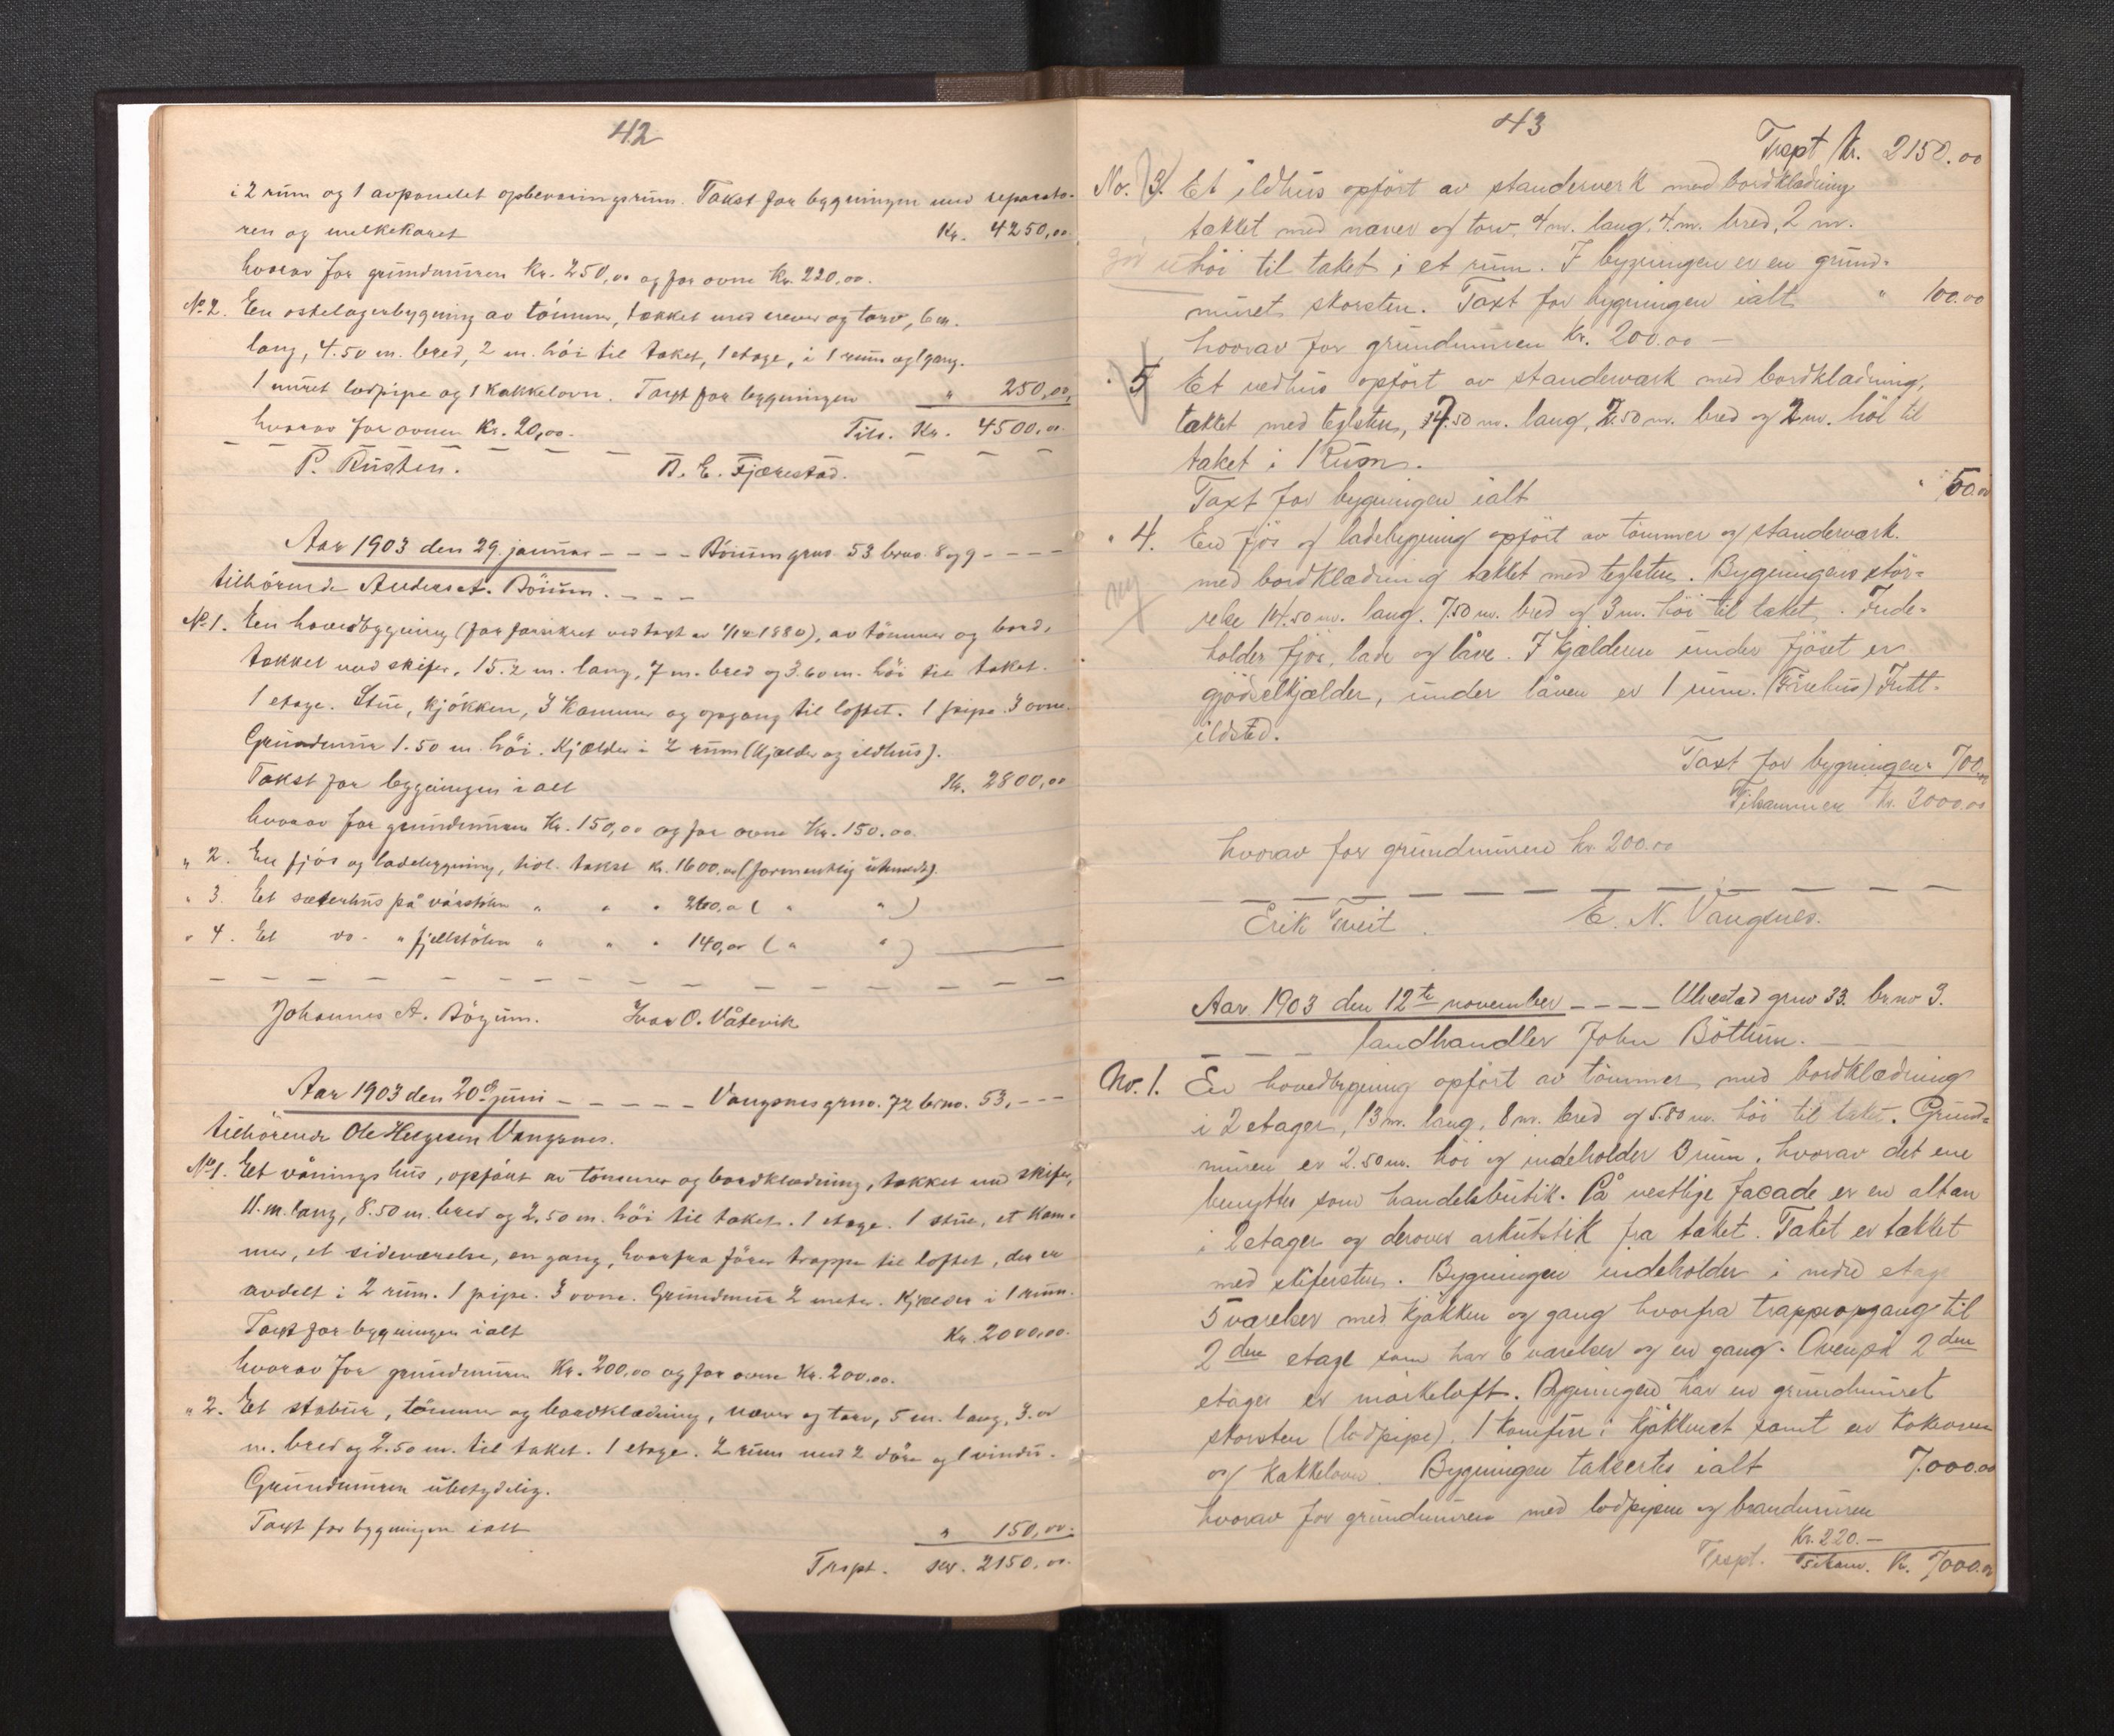 42
i 2 rum og 1 avpanelet opbevaringsrum. Takst for bygningen med separato-
ren og melkekaret Kr. 4250,00.
hvorav for grundmuren Kr. 250,00 og for ovne Kr. 220,00.
No 2. En ostelagerbygning av tömmer, tækket med never og torv, 6 m.
lang, 4.50 m. bred, 2 m. höi til taket, 1 etage, i 1 rum og 1 gang.
1 muret lodpipe og 1 kakkelovn. Taxt for bygningen " 250,00,
hvorav for ovnen Kr. 20,00. Tils. Kr. 4500,00.
P. Rusten. A. E. Fjærestad.
Aar 1903 den 29. januar - - - - Böium grno. 53 brno. 8 og 9 - - - -
tilhörende Anders A. Böium. - - -
No 1. En hovedbygning (før forsikret ved taxt av 1/12 1880), av tömmer og bord,
tækket med skifer, 15.2 m. lang, 7 m. bred og 3.60 m. höi til taket.
1 etage. Stue, kjökken, 3 kammer og opgang til loftet. 1 pipe. 3 ovne.
Grundmur 1.50 m. höi. Kjælder i 2 rum (kjælder og ildhus).
Takst for bygningen i alt Kr. 2800,00
hvorav for grundmuren Kr. 150,00 og for ovne Kr. 150.00.
" 2. En fjös og ladebygning, tidl. takst kr. 1600.00 (formentlig utmeldt).
" 3. Et sæterhus på vårstölen " " " 260,00 ( " " )
" 4. Et do - " fjellstölen " " " 140,00 ( " " )
Johannes A. Bögum. Ivar O. Våtevik
Aar 1903 den 20de juni - - - - - Vangsnes grno. 72 brno. 53, - - -
tilhörende Ole Helgesen Vangsnes.
No 1. Et våningshus, opfört av tömmer og bordklædning, tækket med skifer,
11. m. lang, 8.50 m. bred og 2,50 m. höi til taket. 1 etage. 1 stue, et kam-
mer, et sideværelse, en gang, hvorfra förer trappe til loftet, der er
avdelt i 2 rum. 1 pipe. 3 ovne. Grundmur 2 meter. Kjælder i 1 rum.
Taxt for bygningen ialt Kr. 2000,00.
hvorav for grundmuren Kr. 200,00 og for ovne Kr. 200,00.
" 2. Et stabur, tömmer og bordklædning, never og torv, 5 m. lang, 3.00
m. bred og 2.50 m. til taket. 1 etage. 2 rum med 2 döre og 1 vindu.
Grundmuren ubetydelig.
Taxt for bygningen ialt " 150,00.
Trspt. Kr. 2150,00.
43
Trspt Kr. 2150.00
No. 3. Et ildhus opfört av standerverk med bordklædning
tækket med never og torv, 4 m. lang, 4. m. bred, 2 m.
höi til taket i et rum. I bygningen er en grund-
muret skorsten. Taxt for bygningen ialt " 100.00
hvorav for grundmuren Kr. 200.00 —
" 5 Et vedhus opfört av standerværk med bordklædning,
tækket med teglsten, 7.50 m. lang, 2.50 m. bred og 2 m. höi til
taket i 1 Rum.
Taxt for bygningen ialt " 50.00
" 4. En fjös og ladebygning opfört av tömmer og standerværk.
med bordklædning tækket med teglsten. Bygningens stör-
relse 14.50 m. lang. 7.50 m. bred og 3 m. höi til taket. Inde-
holder fjös, lade og låve. I kjælderen under fjöset er
gjödselkjælder, under låven er 1 rum. (Förehus) Intt-
ildsted.
Taxt for bygningen " 700.00
Tilsammen Kr. 3000.00
hvorav for grundmuren kr. 200.00
Erik Tveit. E. N. Vangsnes.
Aar 1903 den 12te november - - - - Ulvestad grno 33. brno 3.
- - - landhandler John Böttum. - -
No. 1. En hovedbygning opfört av tömmer med bordklædning
i 2 etager, 13 m. lang, 8 m. bred og 5.80 m. höi til taket. Grund-
muren er 2.50 m. höi og indeholder 3 rum, hvorav det ene
benyttes som handelsbutik. På vestlige facade er en altan
i 2 etager og derover arkutstik fra taket. Taket er tækket
med skifersten. Bygningen indeholder i nedre etage
5 værelser med kjökken og gang hvorfra trappeopgang til
2den etage som har 6 værelser og en gang. Ovenpå 2den
etage er mörkeloft. Bygningen har en grundmuret
skorsten (lodpipe). 1 komfur i kjökkenet samt en kokeovn
og kakkelovn. Bygningen taksertes ialt 7.000.00
hvorav for grundmuren med lodpipen og brandmuren
Kr. 220.—
Trspt. Tilsam. Kr. 7000.00